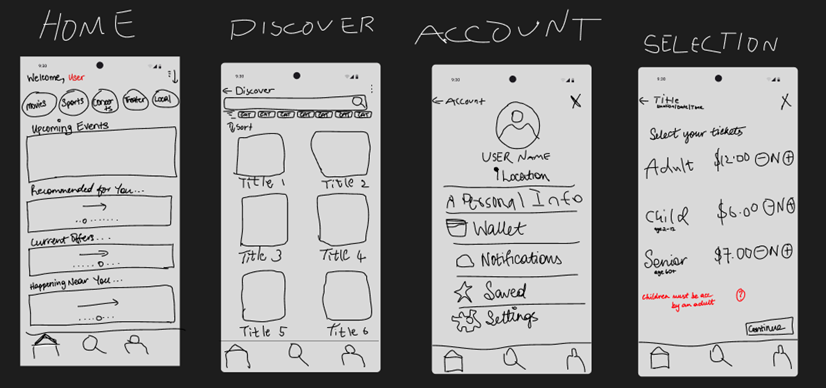 HOME
9:30
Welcome, User
Movies
Sports
Concerts
Theater
Local
Upcoming Events
Recommended for You...
Current Offers...
Happening Near You...
DISCOVER
9:30
← Discover
CAT CAT CAT CAT CAT CAT CAT
Sort
Title 1 Title 2
Title 3 Title 4
Title 5 Title 6
ACCOUNT
9:30
← Account X
USER NAME
Location
Personal Info
Wallet
Notifications
Saved
Settings
SELECTION
9:30
← Title X
Select your tickets
Adult $12.00 - N +
Child $6.00 - N +
age 2-12
Senior $7.00 - N +
age 60+
Children must be acc.
by an adult ?
Continue